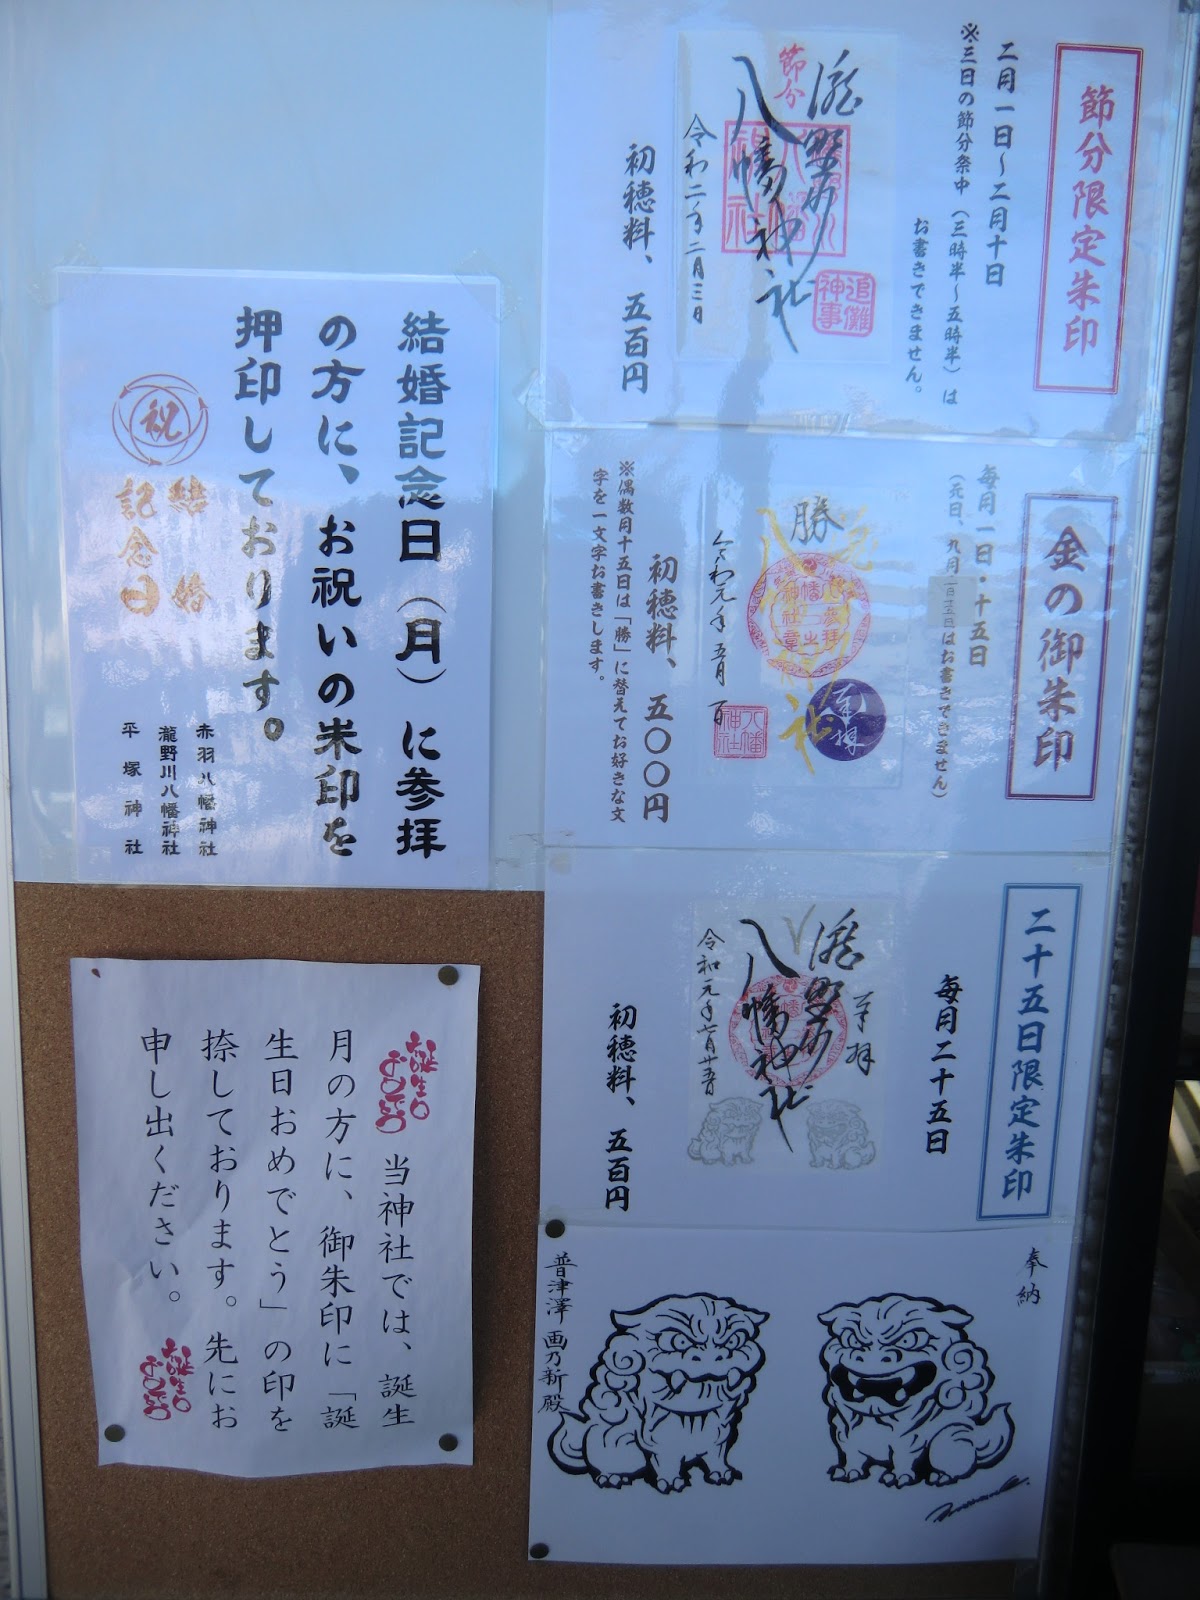 節分限定朱印
二月一日～二月十日
※三日の節分祭中（三時半～五時半）は
お書きできません。
瀧野川
八幡神社
節分
追儺
神事
令和二年二月三日
初穂料、五百円
金の御朱印
毎月一日・十五日
（元日、九月
はお書きできません）
勝
令和元年五月一日
八幡
神社
初穂料、五〇〇円
※偶数月十五日は「勝」に替えてお好きな文
字を一文字お書きします。
二十五日限定朱印
毎月二十五日
奉拝
瀧野川
八幡神社
令和元年七月廿五日
初穂料、五百円
奉納
普津澤画乃新殿
結婚記念日（月）に参拝
の方に、お祝いの朱印を
押印しております。
祝
結婚
記念日
赤羽八幡神社
瀧野川八幡神社
平塚神社
誕生日
おめでとう
当神社では、誕生
月の方に、御朱印に「誕
生日おめでとう」の印を
捺しております。先にお
申し出ください。
誕生日
おめでとう